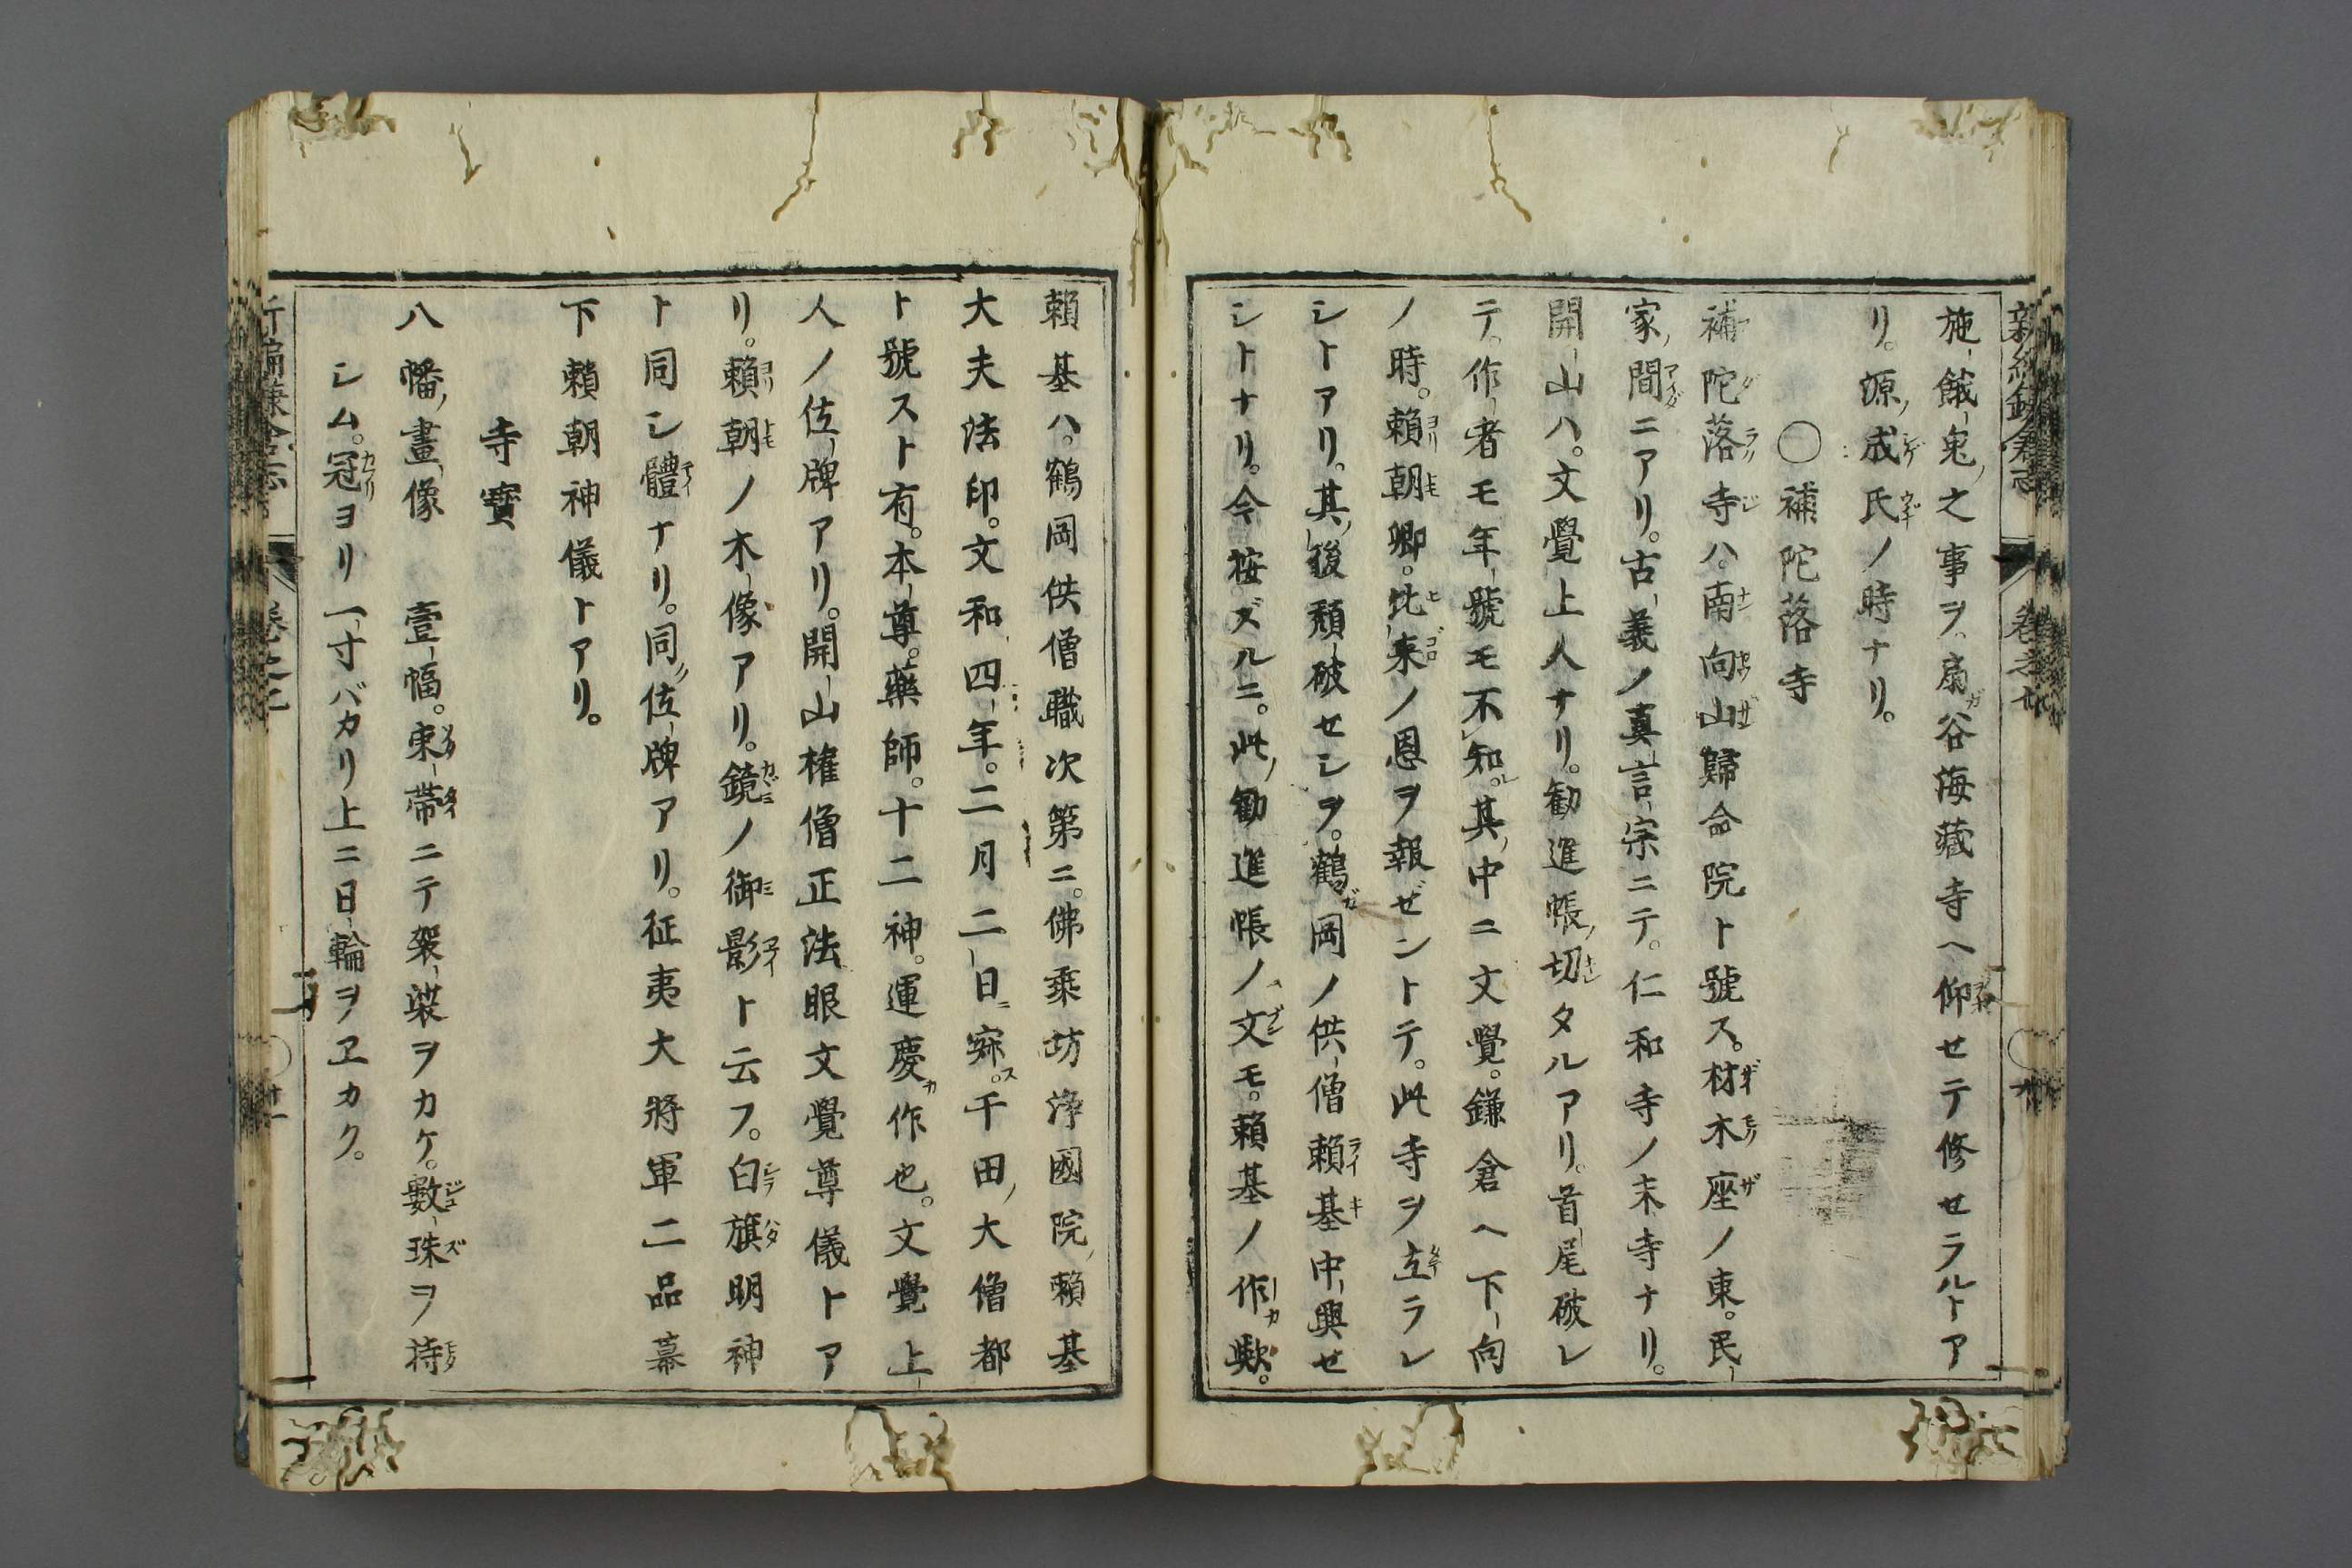 施餓鬼之事ヲ、扇谷海藏寺ヘ仰セテ修セラルトア
リ。源成氏ノ時ナリ。
〇補陀落寺
補陀落寺ハ。南向山歸命院ト號ス。材木座ノ東。民
家ノ間ニアリ。古義ノ真言宗ニテ。仁和寺ノ末寺ナリ。
開山ハ。文覺上人ナリ。勧進帳ノ切タルアリ。首尾破レ
テ。作者モ年號モ不知。其中ニ文覺。鎌倉ヘ下向
ノ時。頼朝卿。比来ノ恩ヲ報ゼントテ。此寺ヲ立ラレ
シトアリ。其後頽破セシヲ。鶴岡ノ供僧頼基中興セ
シトナリ。今按ズルニ。此勧進帳ノ文モ。頼基ノ作歟。
頼基ハ。鶴岡供僧職次第ニ。佛乗坊浄國院頼基
大夫法印。文和四年。二月二日ニ寂ス。千田大僧都
ト號スト有。本尊。藥師。十二神。運慶カ作也。文覺上
人ノ位牌アリ。開山権僧正法眼文覺尊儀トア
リ。頼朝ノ木像アリ。鏡ノ御影ト云フ。白旗明神
ト同シ體ナリ。同位牌アリ。征夷大將軍二品幕
下頼朝神儀トアリ。
寺寶
八幡ノ畫像　壹幅。束帯ニテ袈裟ヲカケ。數珠ヲ持
シム。冠ヨリ一寸バカリ上ニ日輪ヲヱカク。